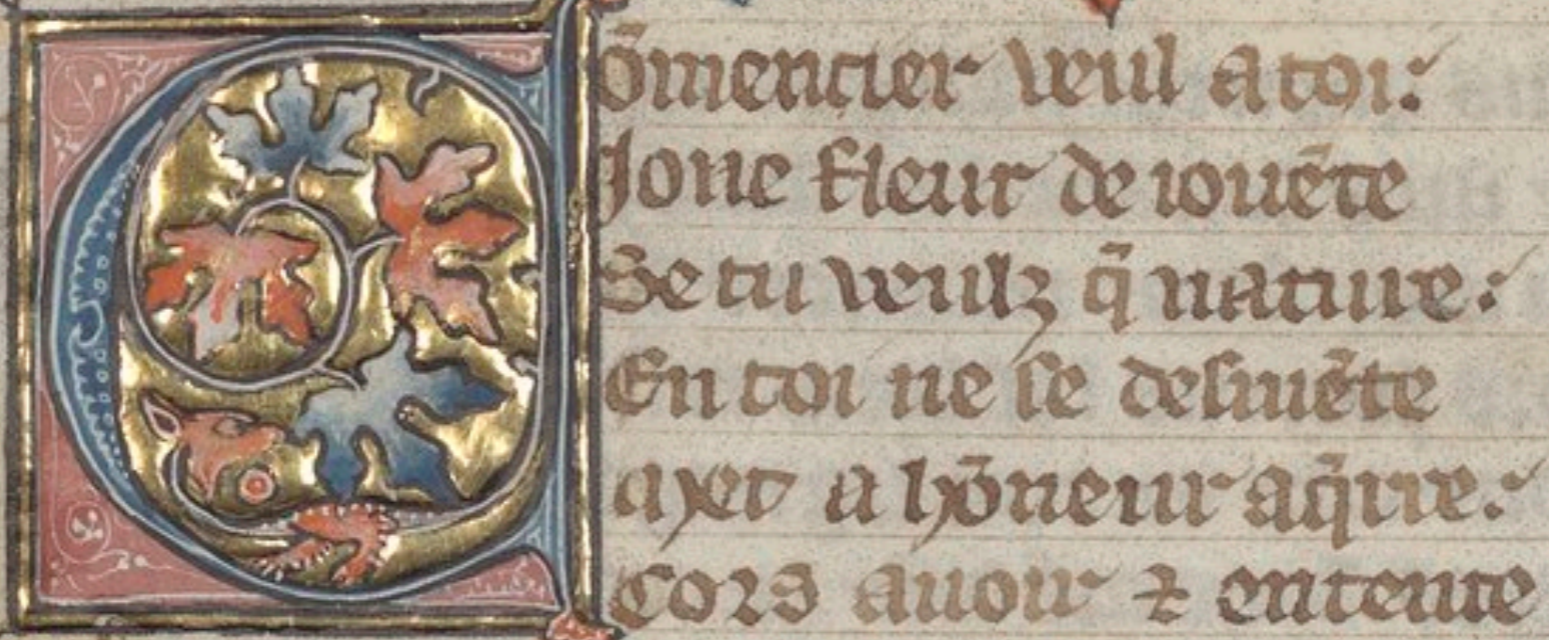 Cõmencier veul a toi:
Jone fleur de iouẽte
Se tu veulz q̃ nature:
En toi ne se desuẽte
ayes a hõneur aq̃rre:
Cors auoir ⁊ entente